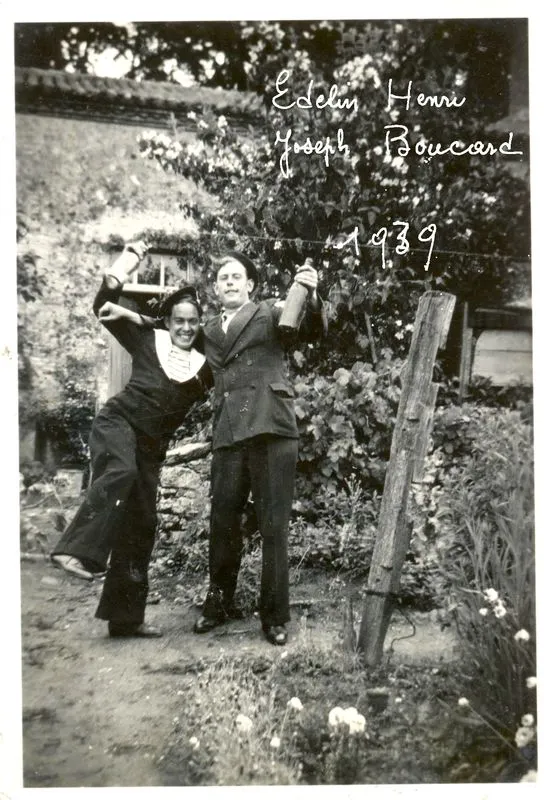 Edelin Henri
Joseph Boucard
1939